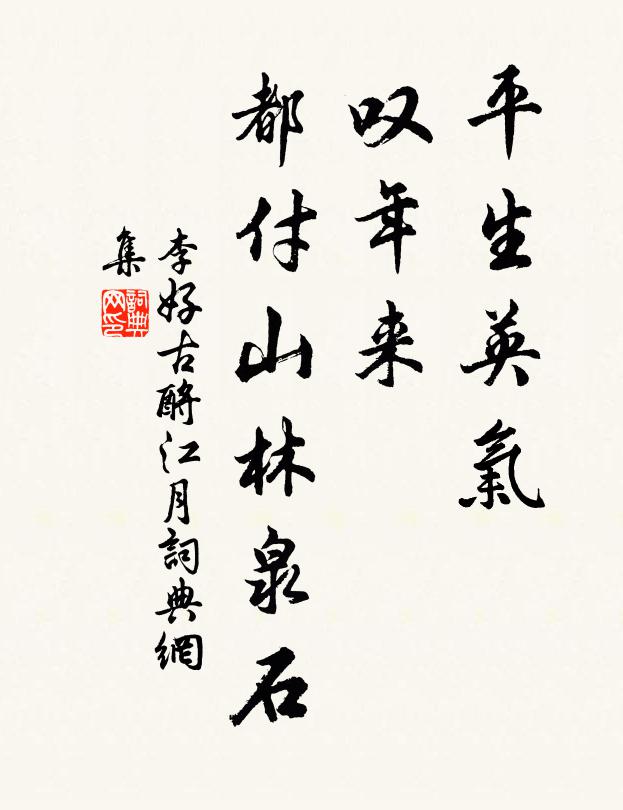 平生英氣
叹年来
都付山林泉石
李好古酹江月詞典網
集
詞典
网印